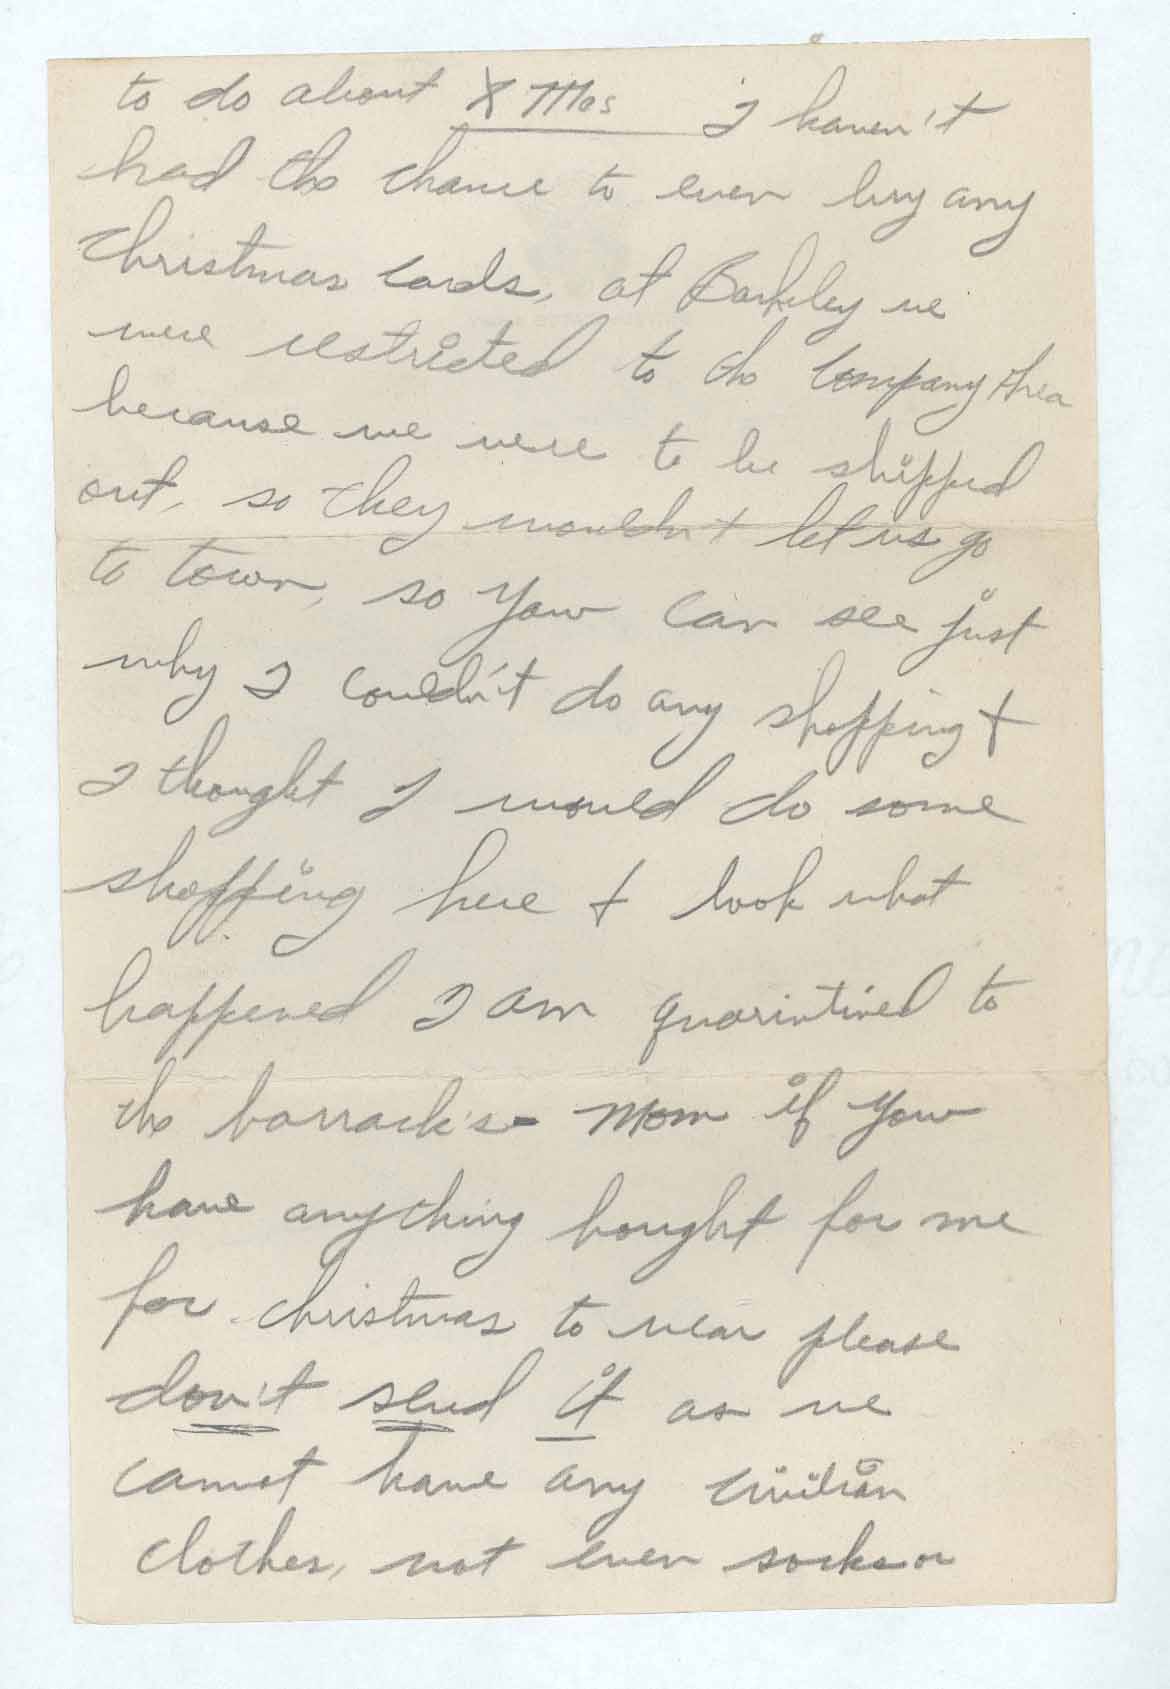 to do about X Mas I haven't
had the chance to even buy any
Christmas cards, at Barkley we
were restricted to the Company Area
because we were to be shipped
out, so they wouldn't let us go
to town, so you can see just
why I couldn't do any shopping +
I thought I would do some
shopping here + look what
happened I am quarintined to
the barrack's - Mom if you
have anything bought for me
for Christmas to wear please
don't send it as we
cannot have any civilian
clothes, not even socks or